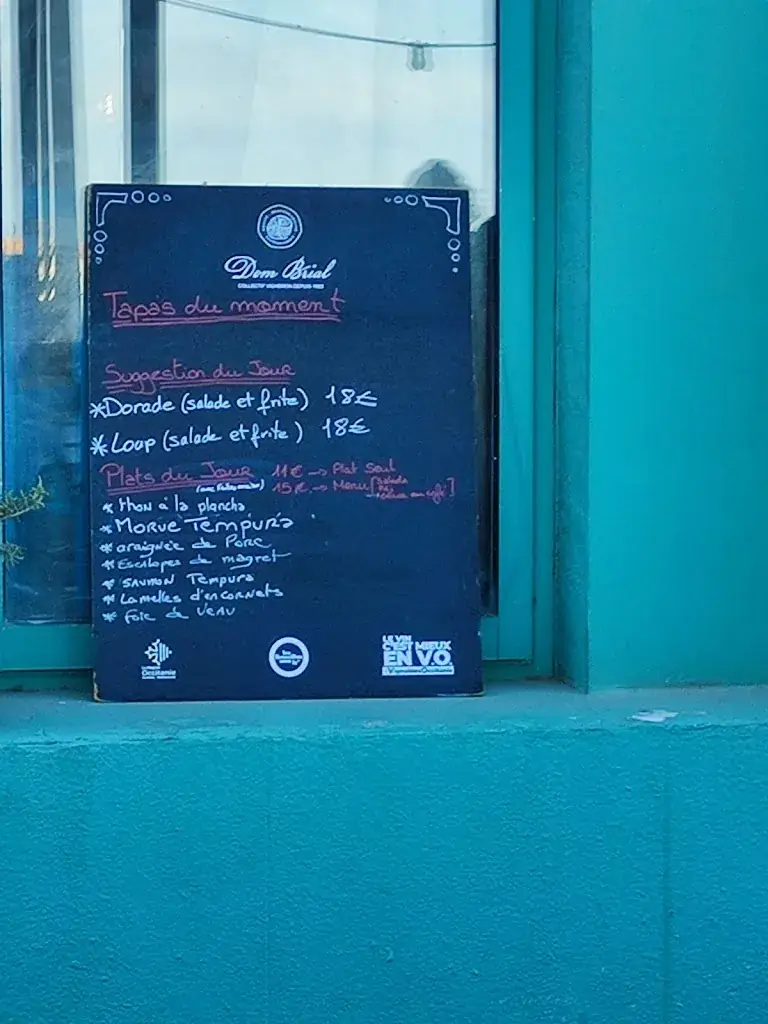 Dom Brial
COLLECTIF VIGNERON DEPUIS 1923
Tapas du moment
Suggestion du Jour
*Dorade (salade et frite) 18€
*Loup (salade et frite) 18€
Plats du Jour 11€ → Plat seul
15€ → Menu [salade
café]
* thon à la plancha
* MORUE TEMPURA
* araignée de Porc
* Escalopes de magret
* SAUMON Tempura
* Lamelles d'encornets
* Foie de VEAU
La Région
Occitanie
LE VIN
C'EST MIEUX
EN V.O.
VigneronsOccitanie